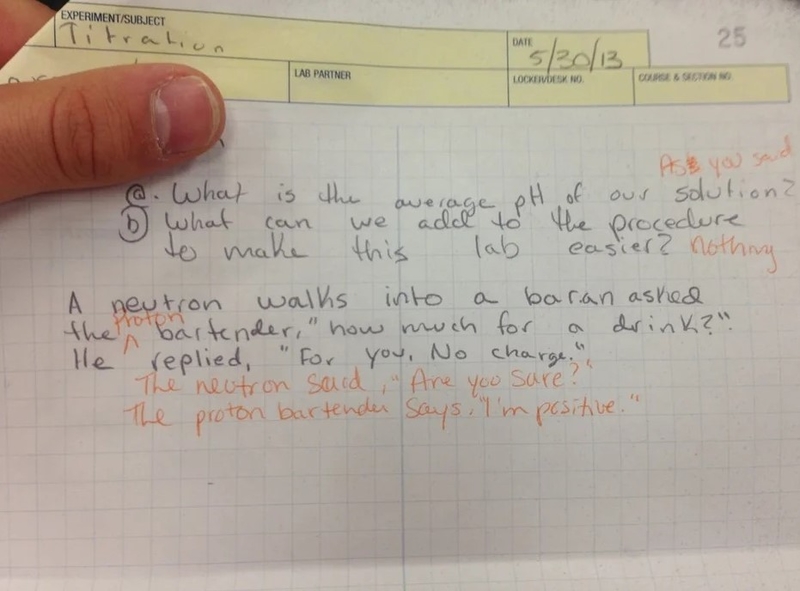 EXPERIMENT/SUBJECT
Titration
DATE
5/30/13
25
LAB PARTNER
LOCKER/DESK NO.
COURSE & SECTION NO.
As you said
a. What is the average pH of our solution?
b) What can we add to the procedure
to make this lab easier? nothing
A neutron walks into a bar an asked
the proton bartender, "how much for a drink?".
He replied, "For you, No charge."
The neutron said, "Are you sure?"
The proton bartender says, "I'm positive."